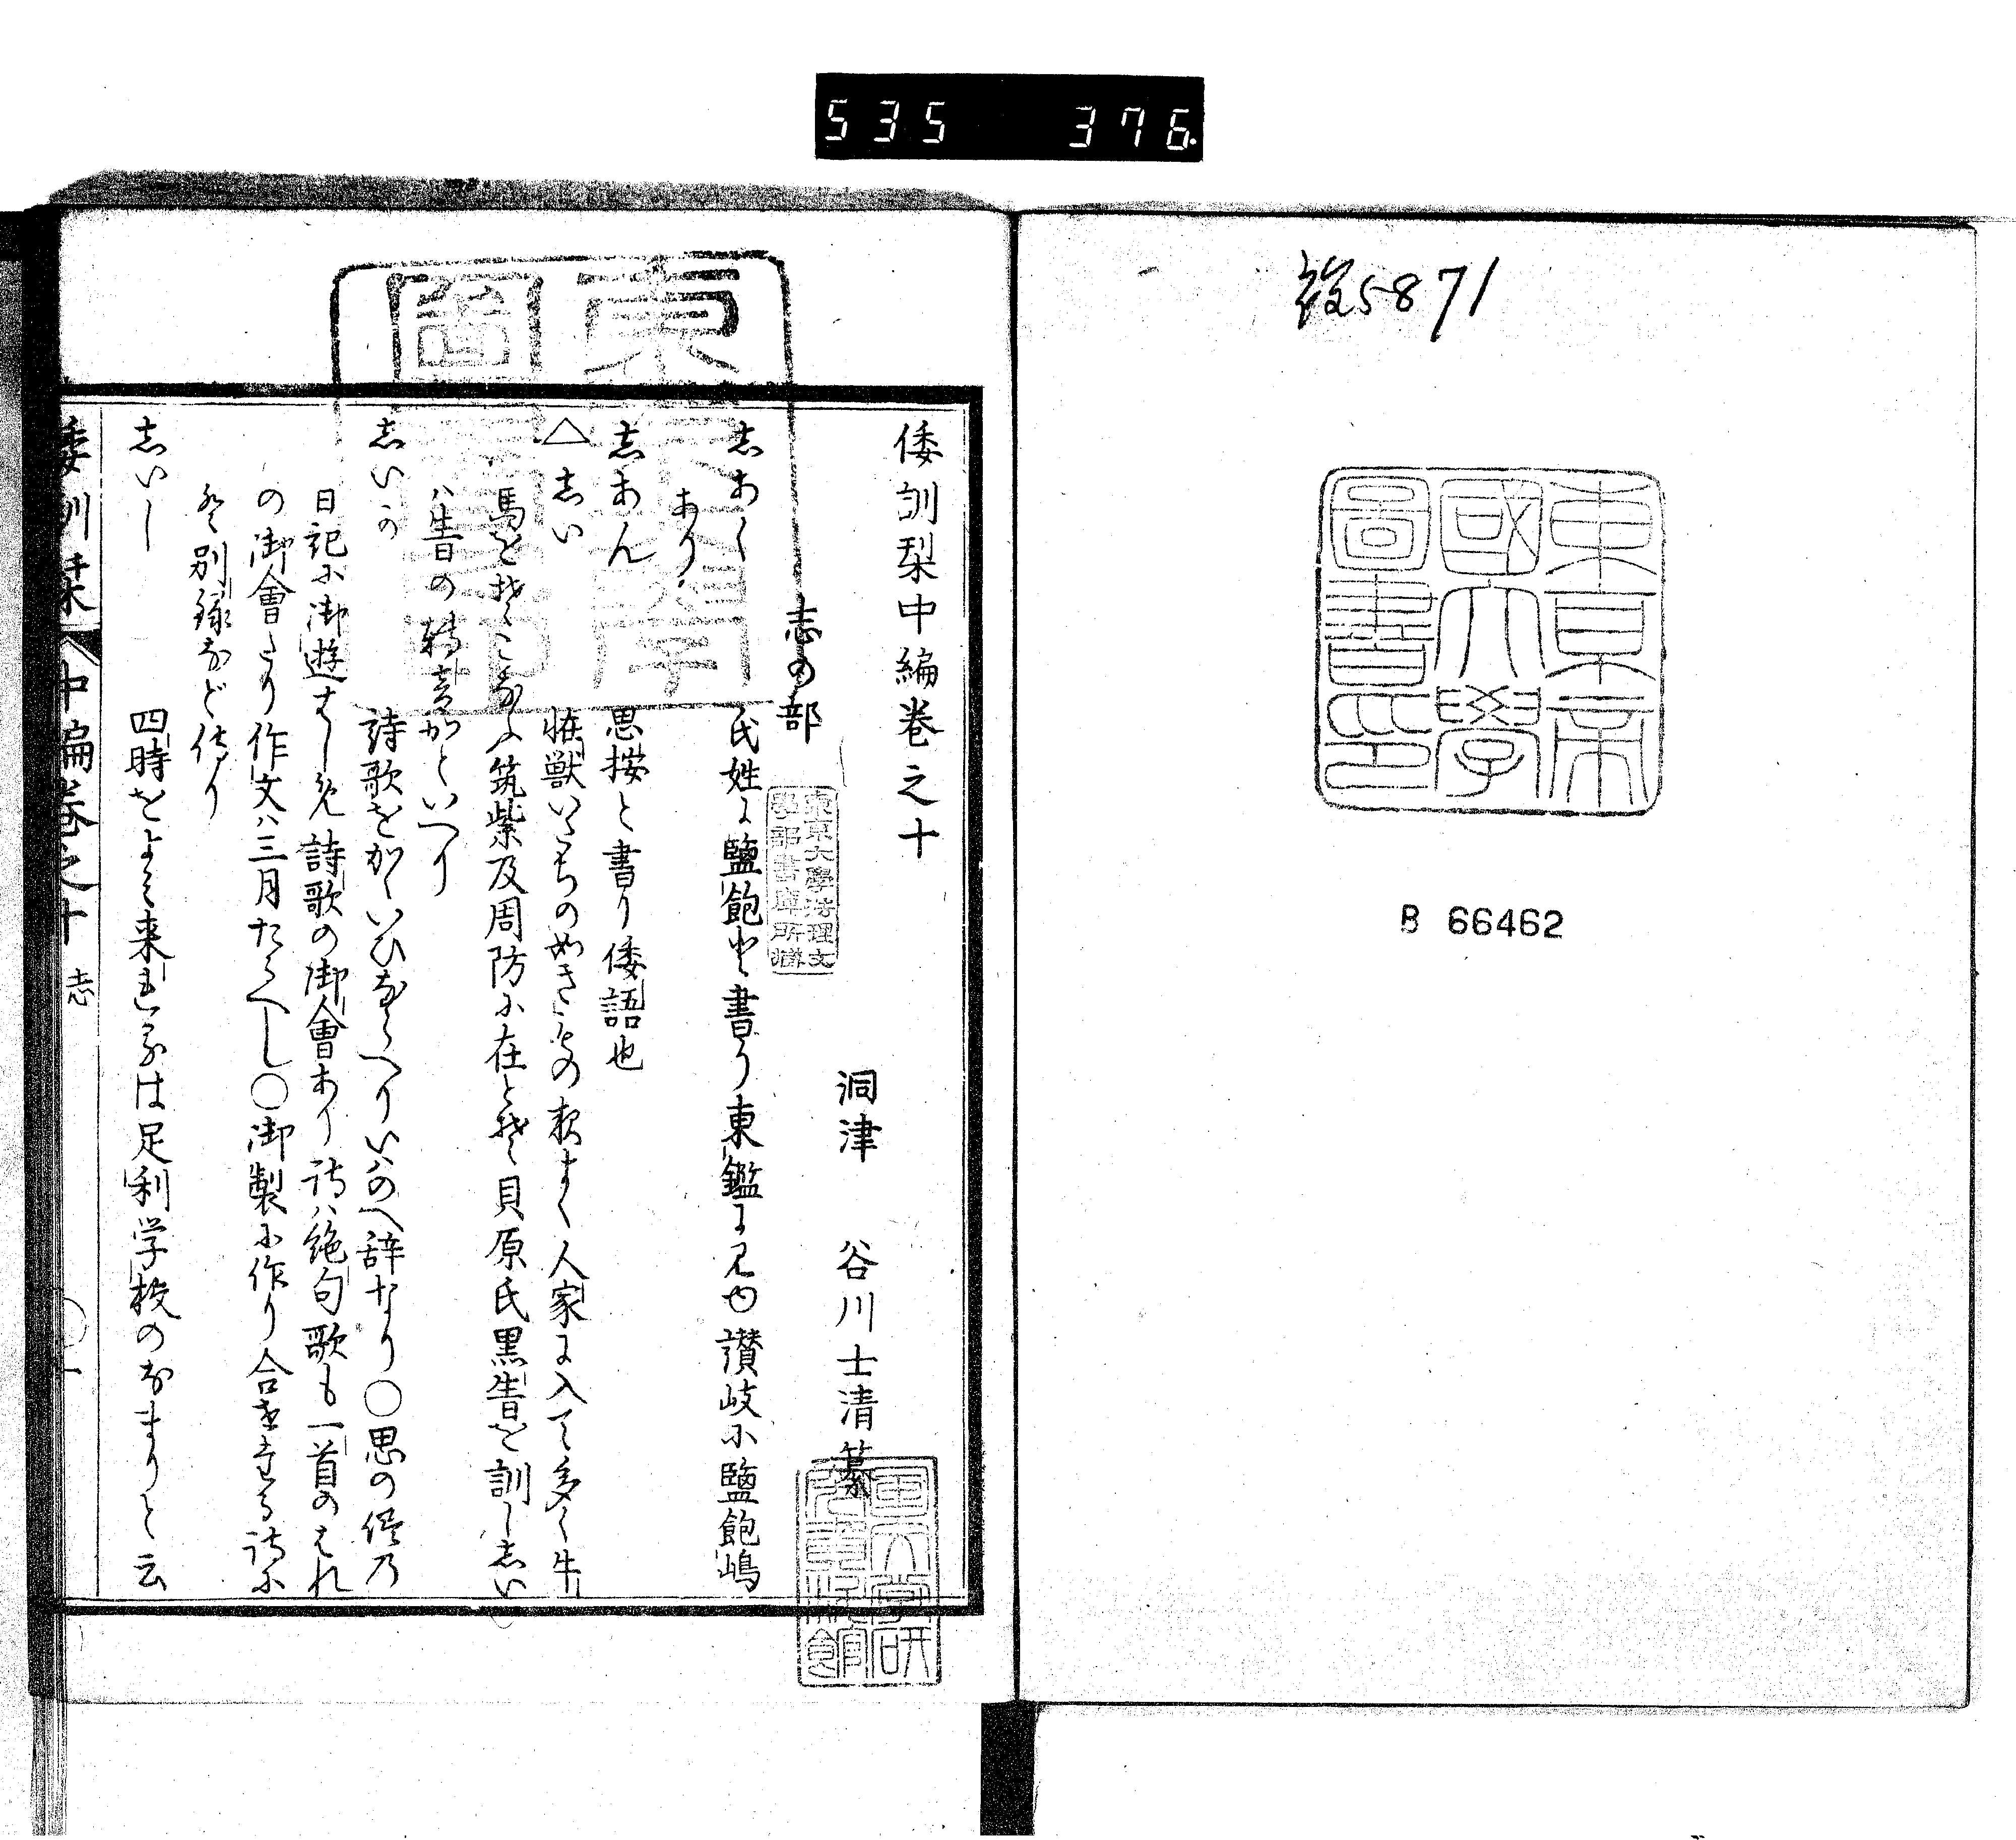 535 376
段5871
東京帝
國大學
圖書印
B 66462
倭訓栞中編巻之十
洞津 谷川士清纂
志の部
東京大學法理文
學部書庫所藏
志あく 氏姓に鹽飽と書り東鑑に見ゆ讃岐に鹽飽嶋
あり
志あん 思按と書り倭語也
△志い 怪獣いたちの如きものの夜まく人家に入て多く牛
馬をそこなふ筑紫及周防に在とそ貝原氏黒眚を訓し志い
ハ眚の轉音かといへり
志いか 詩歌をかくいひならへりいひのへ辞なり○思の侭乃
日記に御遊はしめ詩歌の御會あり詩ハ絶句歌も一首のはれ
の御會より作文ハ三月たるへし○御製に作り合せたる詩に
そ別録なと侍り
志いし 四時をよみ来れるは足利学校のなまりと云
倭訓栞 中編巻之十 志 ○一